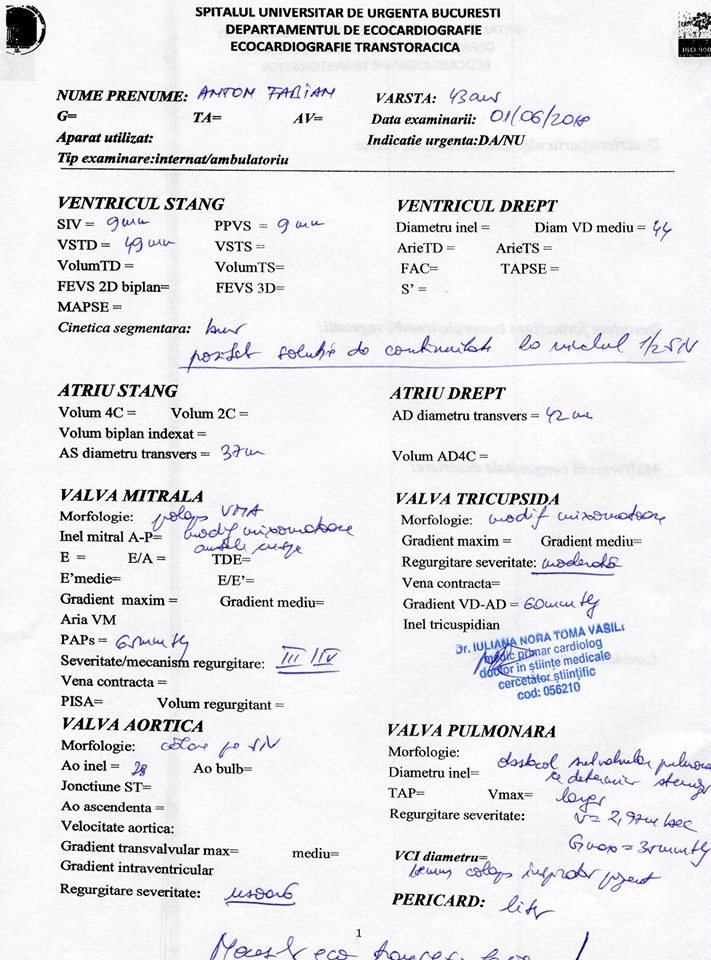 SPITALUL UNIVERSITAR DE URGENTA BUCURESTI
DEPARTAMENTUL DE ECOCARDIOGRAFIE
ECOCARDIOGRAFIE TRANSTORACICA
ISO 900
NUME PRENUME: ANTON FABIAN VARSTA: 43 ani
G= TA= AV= Data examinarii: 01/06/2010
Aparat utilizat: Indicatie urgenta:DA/NU
Tip examinare:internat/ambulatoriu
VENTRICUL STANG
SIV = 9 mm PPVS = 9 mm
VSTD = 49 mm VSTS =
VolumTD = VolumTS=
FEVS 2D biplan= FEVS 3D=
MAPSE =
Cinetica segmentara: buna
posibil solutie de continuitate la nivelul 1/2 SIV
VENTRICUL DREPT
Diametru inel = Diam VD mediu = 44
ArieTD = ArieTS =
FAC= TAPSE =
S' =
ATRIU STANG
Volum 4C = Volum 2C =
Volum biplan indexat =
AS diametru transvers = 37
ATRIU DREPT
AD diametru transvers = 42
Volum AD4C =
VALVA MITRALA
Morfologie: prolaps VMA
Inel mitral A-P= modif mixomatoase
ambele
E = E/A = TDE=
E'medie= E/E'=
Gradient maxim = Gradient mediu=
Aria VM
PAPs = 65mmHg
Severitate/mecanism regurgitare: III/IV
Vena contracta =
PISA= Volum regurgitant =
VALVA TRICUPSIDA
Morfologie: modif mixomatoase
Gradient maxim = Gradient mediu=
Regurgitare severitate: moderata
Vena contracta=
Gradient VD-AD = 60mmHg
Inel tricuspidian
Dr. IULIANA NORA TOMA VASIL
medic primar cardiolog
doctor în științe medicale
cercetător științific
cod: 056210
VALVA AORTICA
Morfologie: calare pe SIV
Ao inel = 28 Ao bulb=
Jonctiune ST=
Ao ascendenta =
Velocitate aortica:
Gradient transvalvular max= mediu=
Gradient intraventricular
Regurgitare severitate: usoara
VALVA PULMONARA
Morfologie: obstacol subvalvular pulmonar
Diametru inel= ce determina
TAP= Vmax=
Regurgitare severitate: V= 2,97m/sec
Gmax = 35mmHg
VCI diametru=
colaps inspirator prezent
PERICARD: liber
1